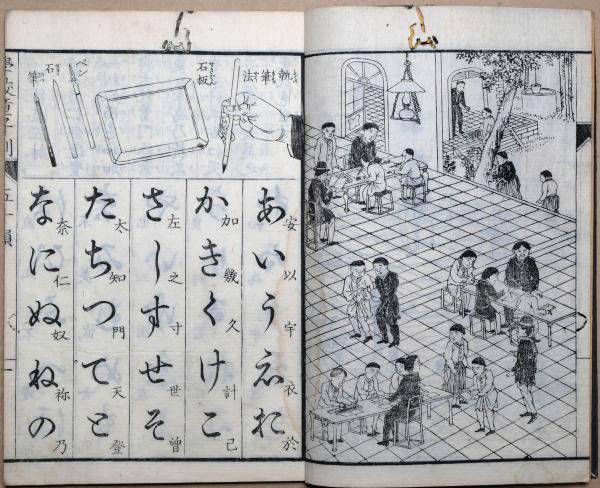 執筆法
石板
ペン
石筆
あいうえお
安以宇衣於
かきくけこ
加幾久計己
さしすせそ
左之寸世曽
たちつてと
太知門天登
なにぬねの
奈仁奴祢乃
五十韻